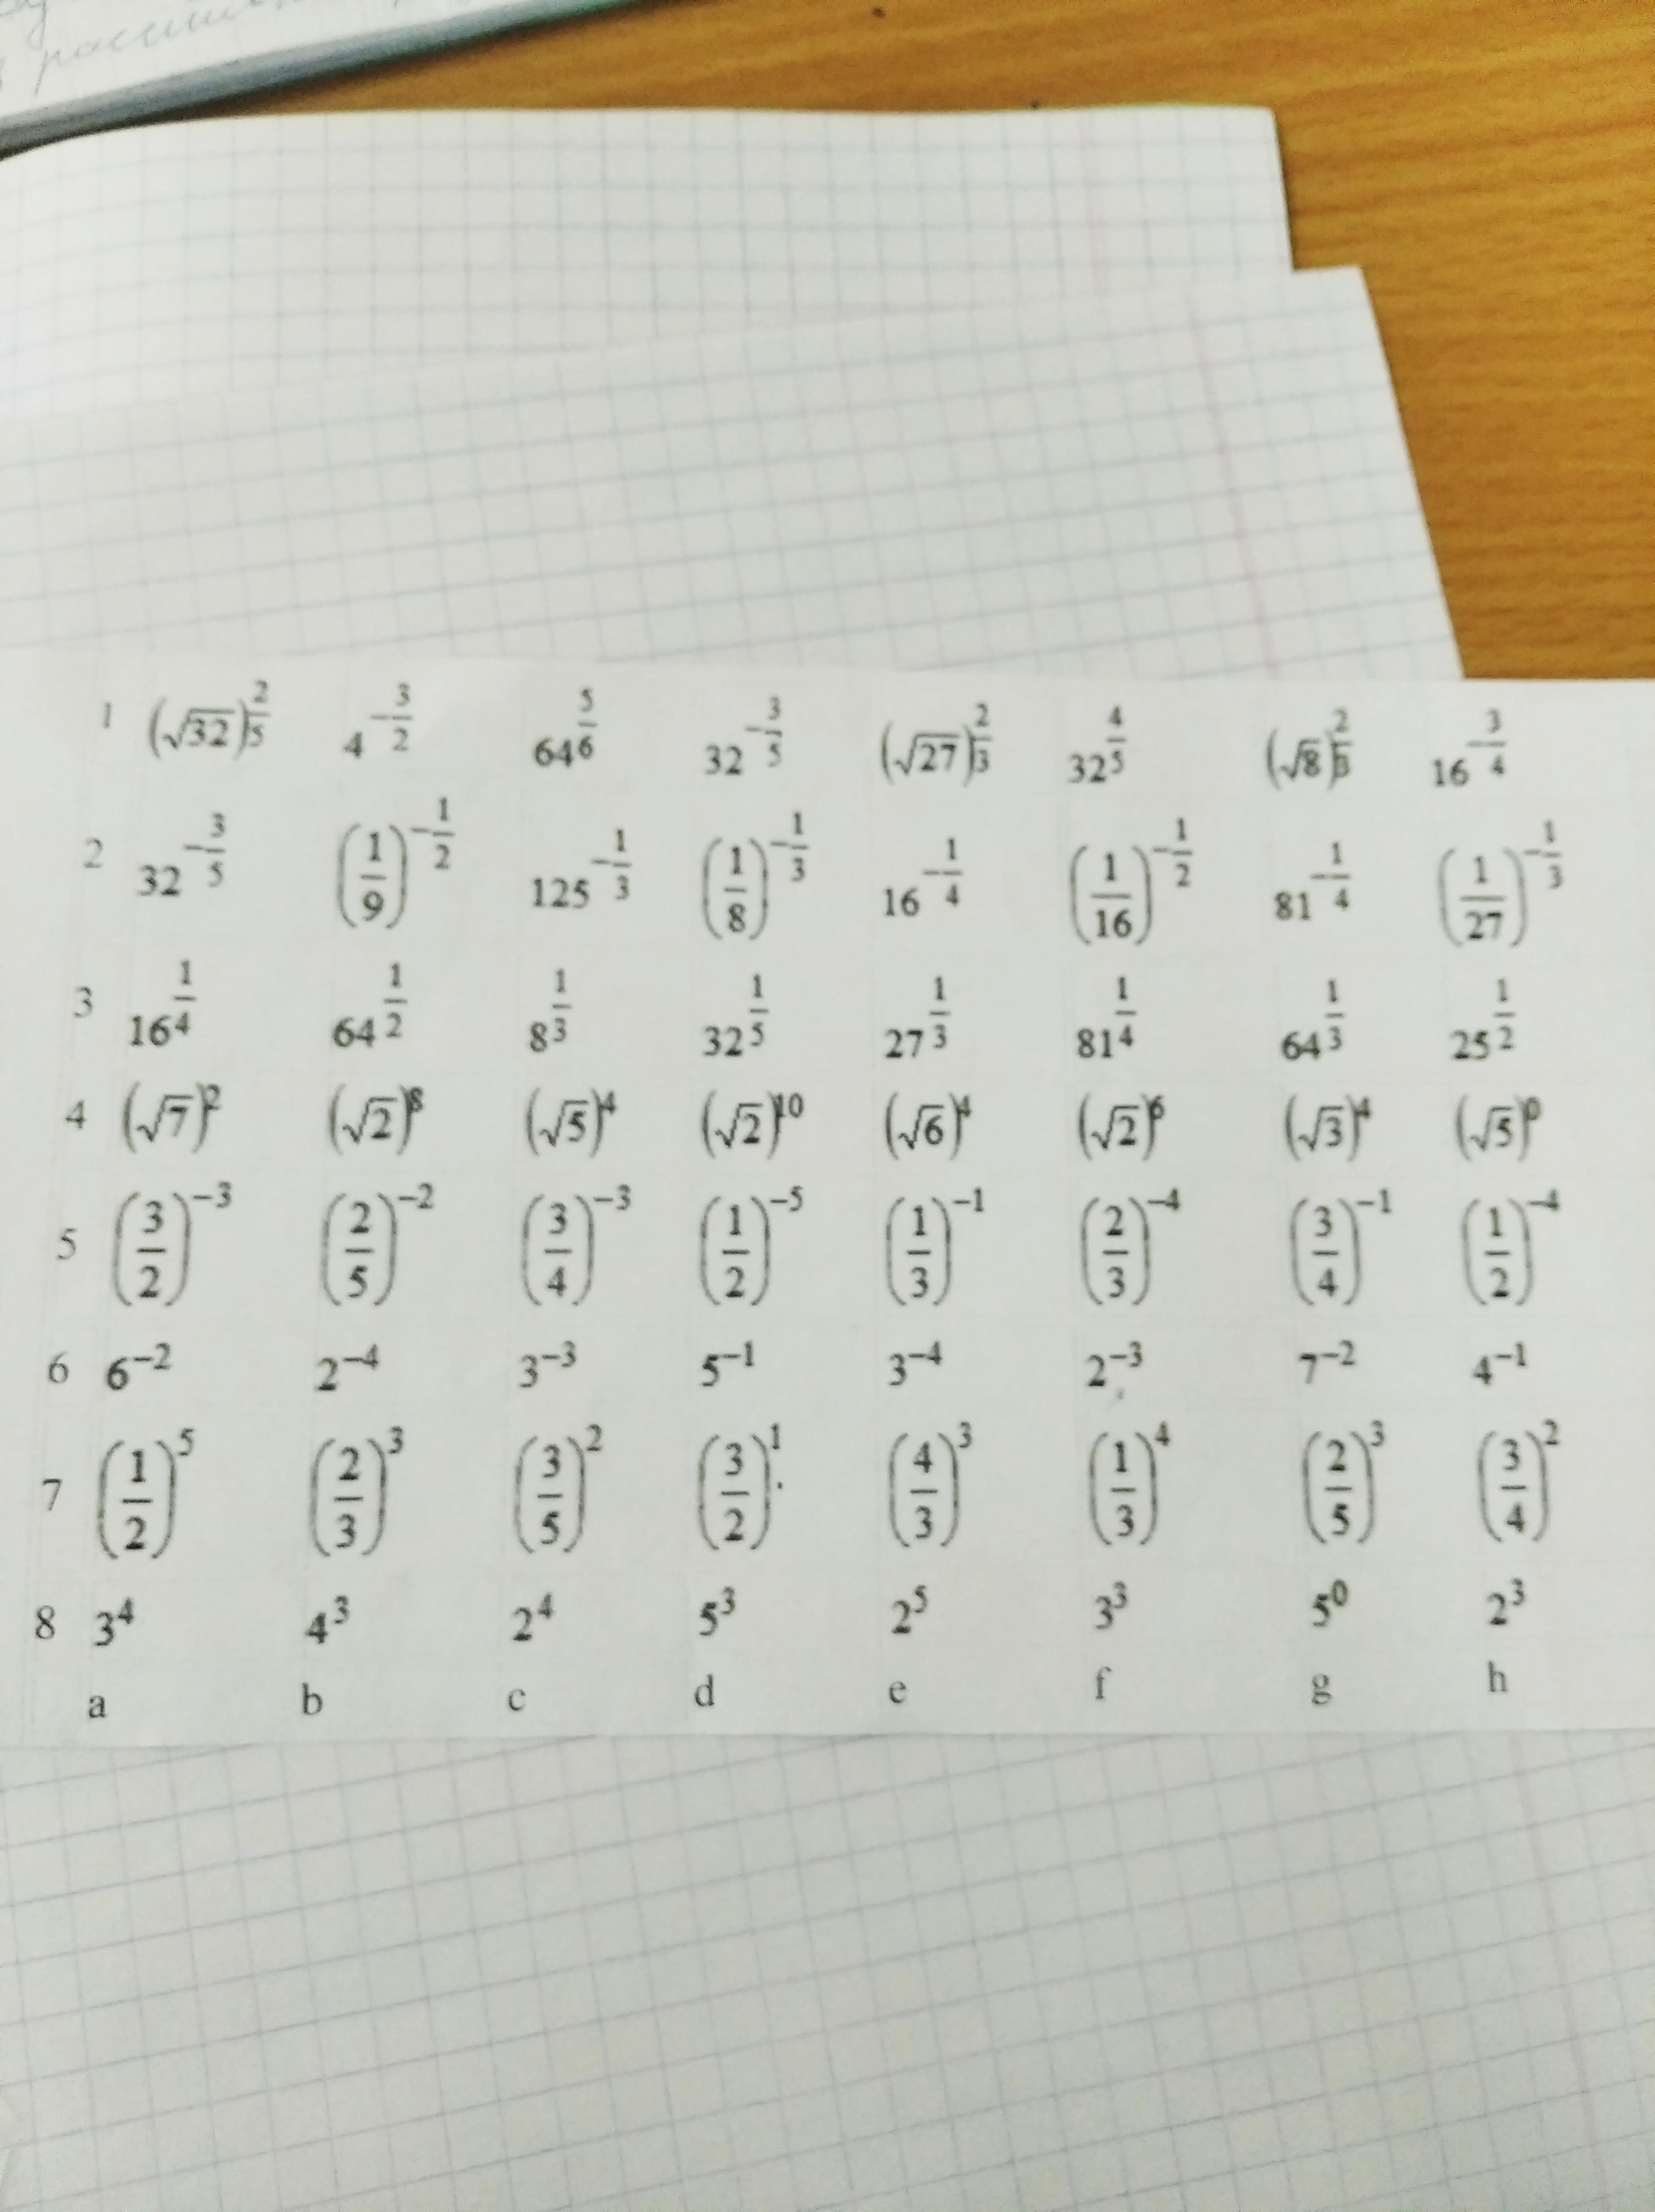 рассши
1 (√32)^(2/5) 4^(-3/2) 64^(5/6) 32^(-3/5) (√27)^(2/3) 32^(4/5) (√8)^(2/3) 16^(-3/4)
2 32^(-3/5) (1/9)^(-1/2) 125^(-1/3) (1/8)^(-1/3) 16^(-1/4) (1/16)^(-1/2) 81^(-1/4) (1/27)^(-1/3)
3 16^(1/4) 64^(1/2) 8^(1/3) 32^(1/5) 27^(1/3) 81^(1/4) 64^(1/3) 25^(1/2)
4 (√7)^2 (√2)^8 (√5)^4 (√2)^10 (√6)^4 (√2)^6 (√3)^4 (√5)^0
5 (3/2)^(-3) (2/5)^(-2) (3/4)^(-3) (1/2)^(-5) (1/3)^(-1) (2/3)^(-4) (3/4)^(-1) (1/2)^(-4)
6 6^(-2) 2^(-4) 3^(-3) 5^(-1) 3^(-4) 2^(-3) 7^(-2) 4^(-1)
7 (1/2)^5 (2/3)^3 (3/5)^2 (3/2)^1 (4/3)^3 (1/3)^4 (2/5)^3 (3/4)^2
8 3^4 4^3 2^4 5^3 2^5 3^3 5^0 2^3
a b c d e f g h